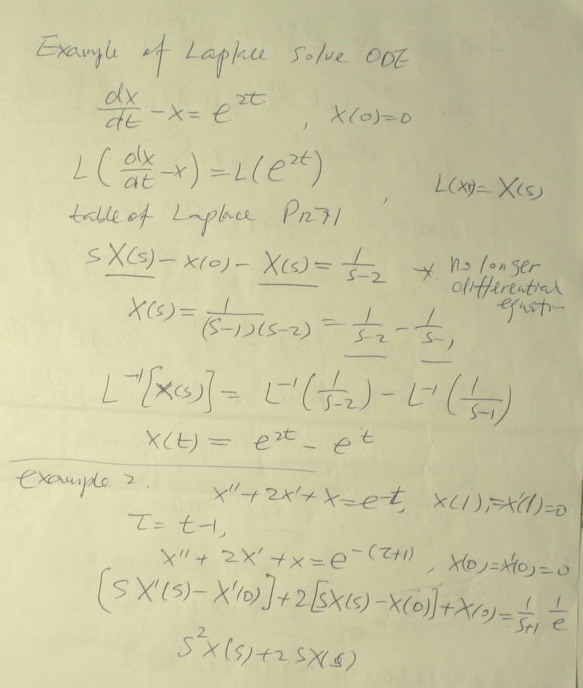 Example of Laplace solve ODE
dx/dt - x = e^2t , x(0)=0
L(dx/dt - x) = L(e^2t) , L(x) = X(s)
table of Laplace P1271
sX(s) - x(0) - X(s) = 1/(s-2) * no longer
differential
X(s) = 1/((s-1)(s-2)) = 1/(s-2) - 1/(s-1)
L^-1[X(s)] = L^-1(1/(s-2)) - L^-1(1/(s-1))
x(t) = e^2t - e^t
example 2. x'' + 2x' + x = e^-t, x(1)=x'(1)=0
τ = t-1,
x'' + 2x' + x = e^-(τ+1) , x(0)=x'(0)=0
[sX'(s) - X'(0)] + 2[sX(s) - X(0)] + X(s) = 1/(s+1) 1/e
s^2X(s) + 2sX(s)